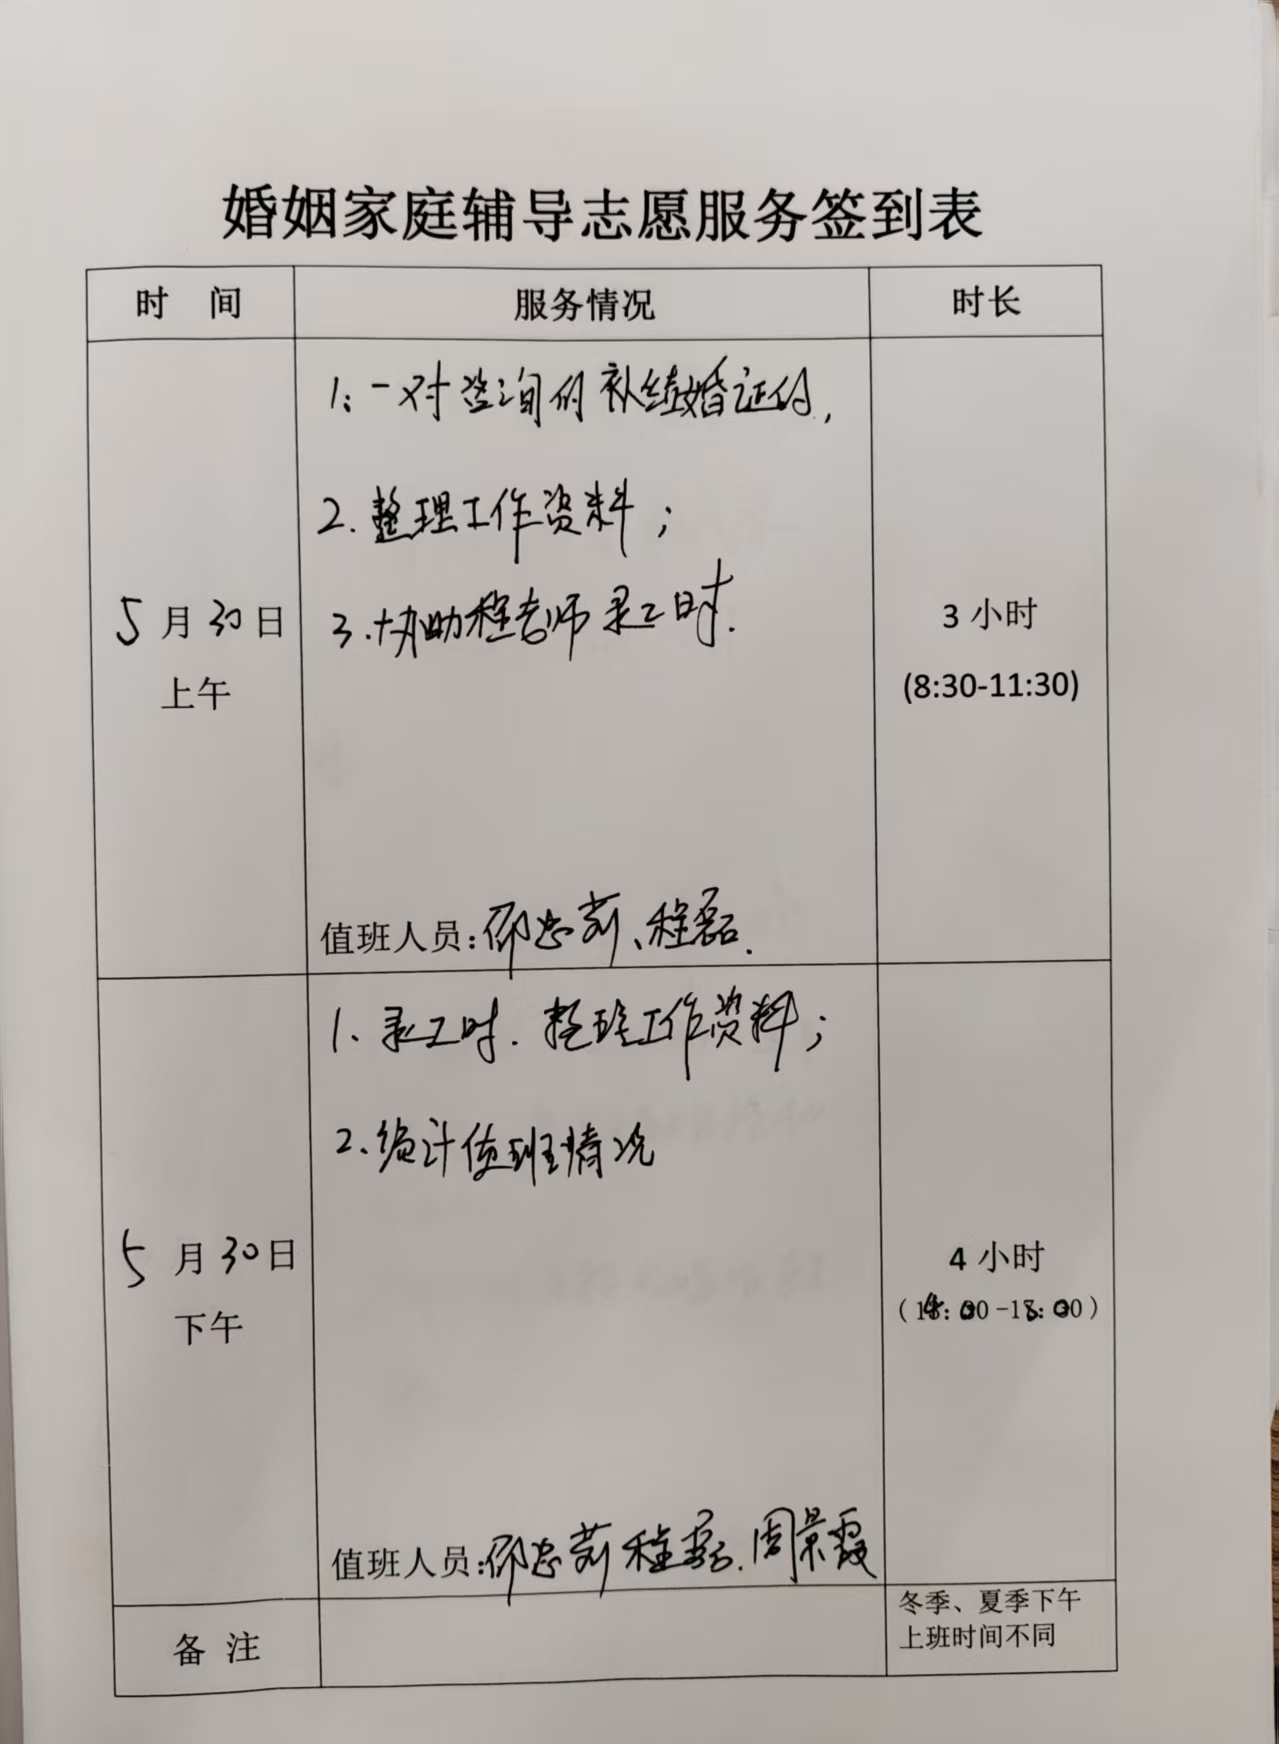 婚姻家庭辅导志愿服务签到表
时 间 服务情况 时长
1、一对咨询的补结婚证的,
2. 整理工作资料;
3. 协助程老师录工时.
5月30日
上午
3 小时
(8:30-11:30)
值班人员:邵忠莉、程磊.
1、录工时. 整理工作资料;
2、统计值班情况
5月30日
下午
4 小时
(14:00-18:00)
值班人员:邵忠莉 程磊. 周景霞
备 注
冬季、夏季下午
上班时间不同